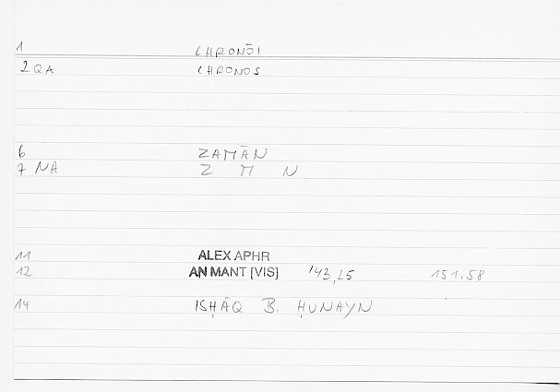 1 CHRONŌI
2 QA CHRONOS
6 ZAMĀN
7 NA Z M N
11 ALEX APHR
12 AN MANT [VIS] 143,25 151,58
14 ISḤĀQ B. ḤUNAYN